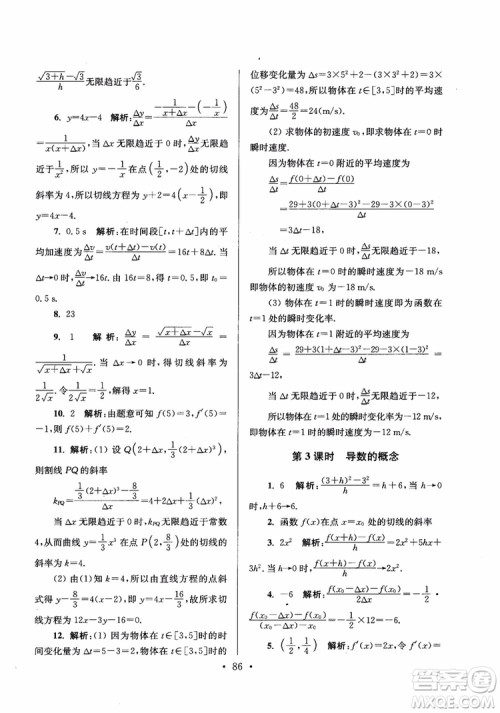 (√(3+h)−√3)/h 无限趋近于 √3/6.
6. y=4x−4 解析: Δy/Δx = (−1/(x+Δx)−(−1/x))/Δx
= 1/(x(x+Δx)), 当 Δx 无限趋近于 0 时, Δy/Δx 无限趋近
于 1/x², 所以 y=−1/x 在点(1/2,−2)处的切线
斜率为 4, 所以切线方程为 y+2=4(x−1/2),
即 y=4x−4.
7. 0.5 s 解析: 在时间段[t,t+Δt]内的平
均加速度为 Δv/Δt = (v(t+Δt)−v(t))/Δt = 2t+Δt. 当
Δt→0 时, Δv/Δt 无限趋近于 2t, 所以 t₀=
0.5 s.
8. 23
9. 1 解析: Δy/Δx = (√(x+Δx)−√x)/Δx =
1/(√(x+Δx)+√x). 当 Δx→0 时, 可得切线斜率 k=
1/(2√x). 令 1/(2√x)=1/2, 得 x=1.
10. 2 解析: 由题意可知 f(5)=3, f′(5)=
−1, 所以 f(5)+f′(5)=2.
11. 解析: (1) 设 Q(2+Δx, 1/3(2+Δx)³),
则割线 PQ 的斜率
k_PQ = (1/3(2+Δx)³−8/3)/Δx = 4+2Δx+1/3(Δx)².
当 Δx 无限趋近于 0 时, k_PQ 无限趋近于常数
4, 从而曲线 y=1/3x³ 在点 P(2, 8/3)处的切线
斜率为 4.
(2) 由(1)知 k=4, 所以由直线方程的点斜
式得 y−8/3=4(x−2), 所以所求切线方程为
12x−3y−16=0.
12. 解析: (1) 因为物体在 t∈[3,5]时的时
间变化量为 Δt=5−3=2, 物体在 t∈[3,5]时的
位移变化量为 Δs=3×5²+2−(3×3²+2)=3×
(5²−3²)=48, 所以物体在 t∈[3,5]时的平均
速度为 Δs/Δt=48/2=24(m/s).
(2) 求物体的初速度 v₀, 即求物体在 t=0 时的
瞬时速度.
因为物体在 t=0 附近的平均速度为
Δs/Δt = (f(0+Δt)−f(0))/Δt
= (29+3[(0+Δt)−3]²−29−3(0−3)²)/Δt
=3Δt−18,
当 Δt 无限趋近于 0 时, Δs/Δt 无限趋近于−18,
所以物体在 t=0 时的瞬时速度为−18 m/s,
即物体的初速度为−18 m/s.
(3) 物体在 t=1 时的瞬时速度即为函数在
t=1 处的瞬时变化率.
因为物体在 t=1 附近的平均速度为
Δs/Δt = (f(1+Δt)−f(1))/Δt
= (29+3[(1+Δt)−3]²−29−3(1−3)²)/Δt =
3Δt−12,
当 Δt 无限趋近于 0 时, Δs/Δt 无限趋近于−12,
所以物体在 t=1 时的瞬时速度为−12 m/s.
第 3 课时 导数的概念
1. 6 解析: ((3+h)²−3²)/h=h+6, 当 h→0
时, h+6→6.
2. 函数 f(x)在点 x=x₀ 处的切线的斜率
3. 2x² 解析: (f(x+h)−f(x))/h = 2x²+4hx+
3h². 当 h→0 时, f′(x)=2x².
4. −6 解析: (f(x₀−Δx)−f(x₀))/(2Δx)=−1/2·
(f(x₀−Δx)−f(x₀))/(−Δx)=−1/2×12=−6.
5. (1/2, 1/4) 解析: f′(x)=2x, 令 f′(x)=
86